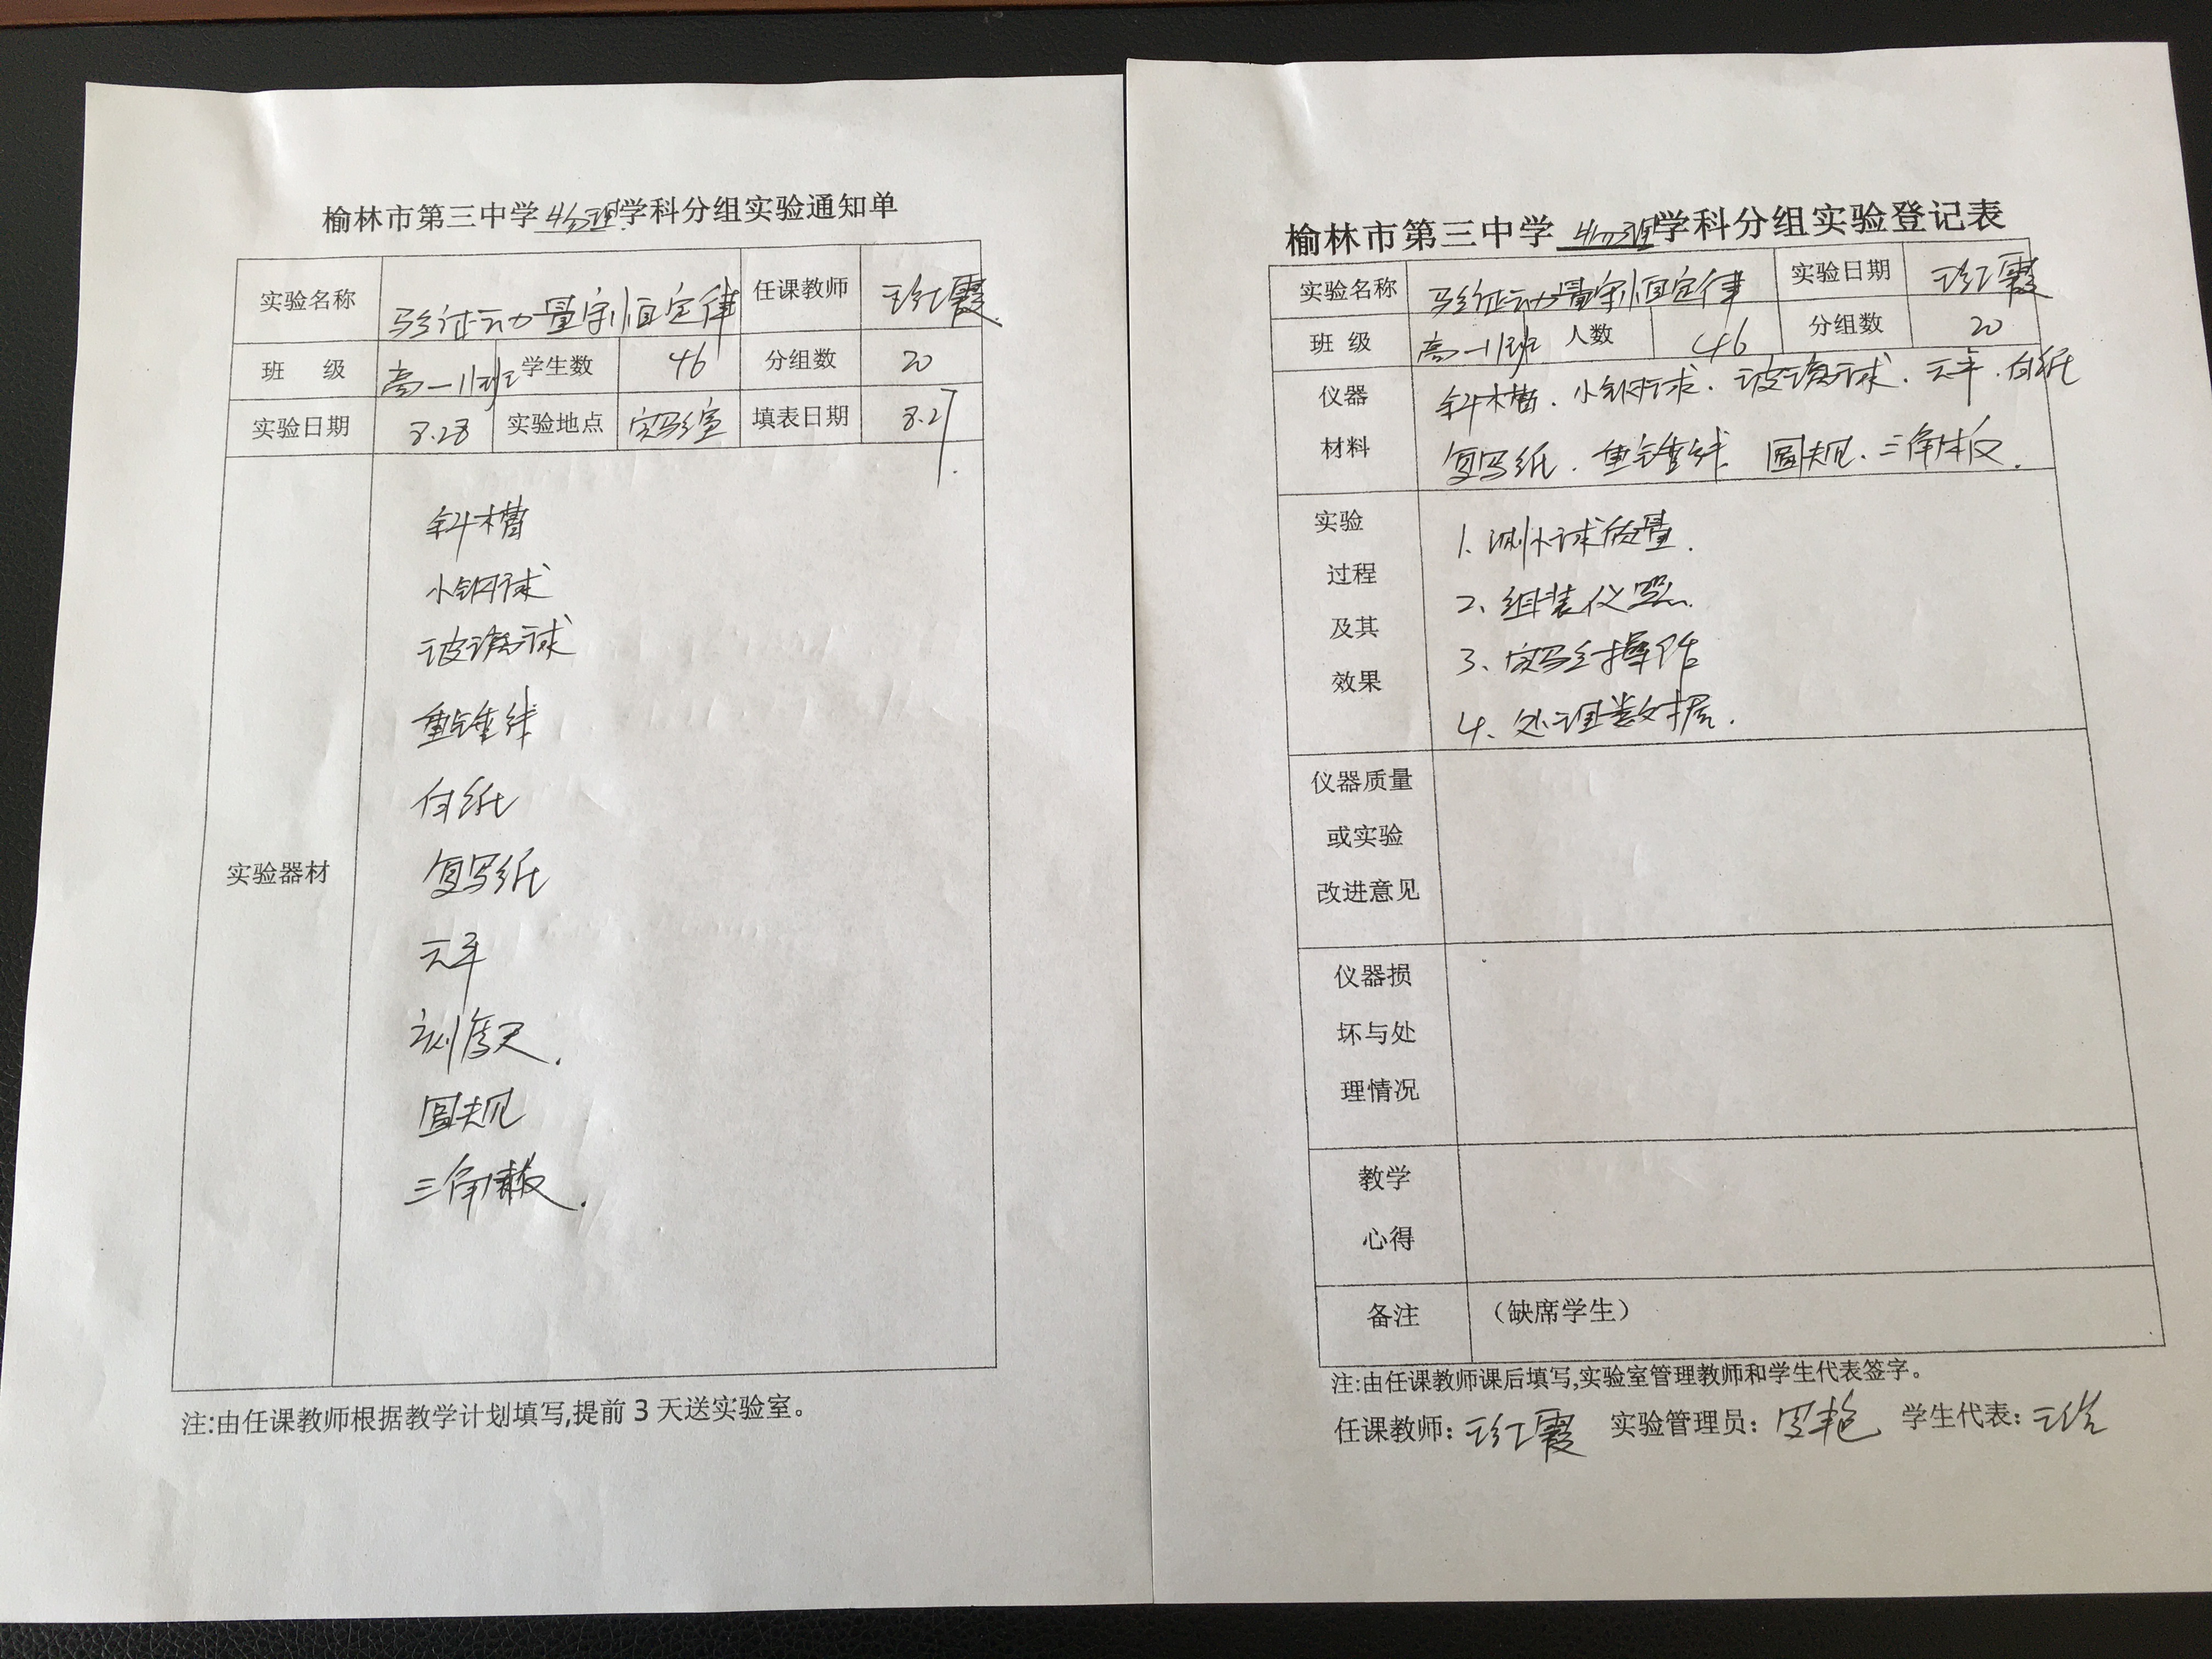 榆林市第三中学 物理 学科分组实验通知单
实验名称 验证动量守恒定律 任课教师 王红霞
班 级 高一11班 学生数 46 分组数 20
实验日期 8.28 实验地点 实验室 填表日期 8.27
实验器材
斜槽
小钢球
玻璃球
重锤线
白纸
复写纸
天平
刻度尺.
圆规
三角板.
注:由任课教师根据教学计划填写,提前 3 天送实验室。
榆林市第三中学 物理 学科分组实验登记表
实验名称 验证动量守恒定律 实验日期 王红霞
班 级 高一11班 人数 46 分组数 20
仪器
材料
斜槽. 小钢球. 玻璃球. 天平. 白纸
复写纸. 重锤线 圆规. 三角板.
实验
过程
及其
效果
1. 测小球质量.
2、组装仪器.
3、实验操作
4、处理数据.
仪器质量
或实验
改进意见
仪器损
坏与处
理情况
教学
心得
备注 （缺席学生）
注:由任课教师课后填写,实验室管理教师和学生代表签字。
任课教师: 王红霞 实验管理员: 罗艳 学生代表: